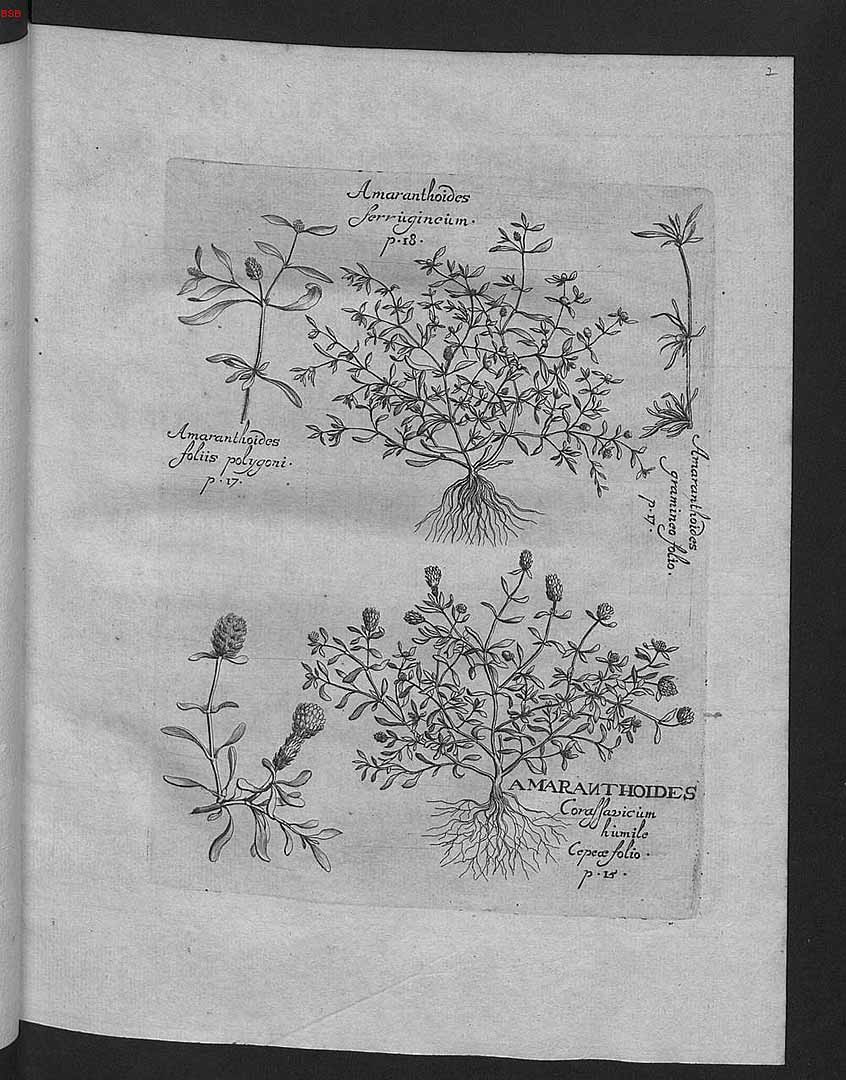 BSB
2
Amaranthoides
ferrugineum.
p. 18.
Amaranthoides
foliis polygoni.
p. 17.
Amaranthoides
gramineo folio.
p. 17.
AMARANTHOIDES
Corassavicum
humile
Cepeæ folio.
p. 15.